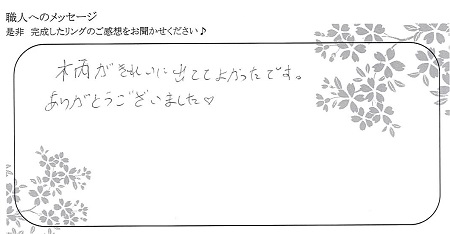 職人へのメッセージ
是非 完成したリングのご感想をお聞かせください♪
木柄がきれいに出ててよかったです。
ありがとうございました♡